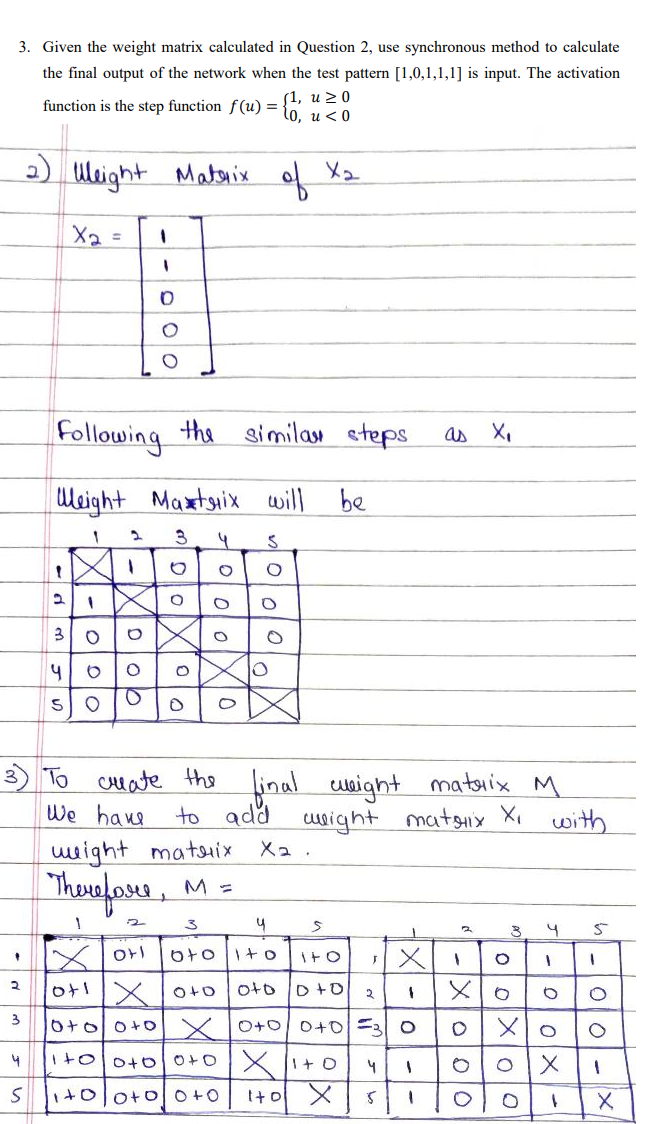 3. Given the weight matrix calculated in Question 2, use synchronous method to calculate
the final output of the network when the test pattern [1,0,1,1,1] is input. The activation
function is the step function f(u) = {1, u ≥ 0
0, u < 0
2) Weight Matrix of X2
X2 = 1
1
0
0
0
Following the similar steps as X1
Weight Matrix will be
1 2 3 4 5
1 X 1 0 0 0
2 1 X 0 0 0
3 0 0 X 0 0
4 0 0 0 X 0
5 0 0 0 0 X
3) To create the final weight matrix M
We have to add weight matrix X1 with
weight matrix X2 .
Therefore, M =
1 2 3 4 5 1 2 3 4 5
1 X 0+1 0+0 1+0 1+0 1 X 1 0 1 1
2 0+1 X 0+0 0+0 0+0 2 1 X 0 0 0
3 0+0 0+0 X 0+0 0+0 = 3 0 0 X 0 0
4 1+0 0+0 0+0 X 1+0 4 1 0 0 X 1
5 1+0 0+0 0+0 1+0 X 5 1 0 0 1 X